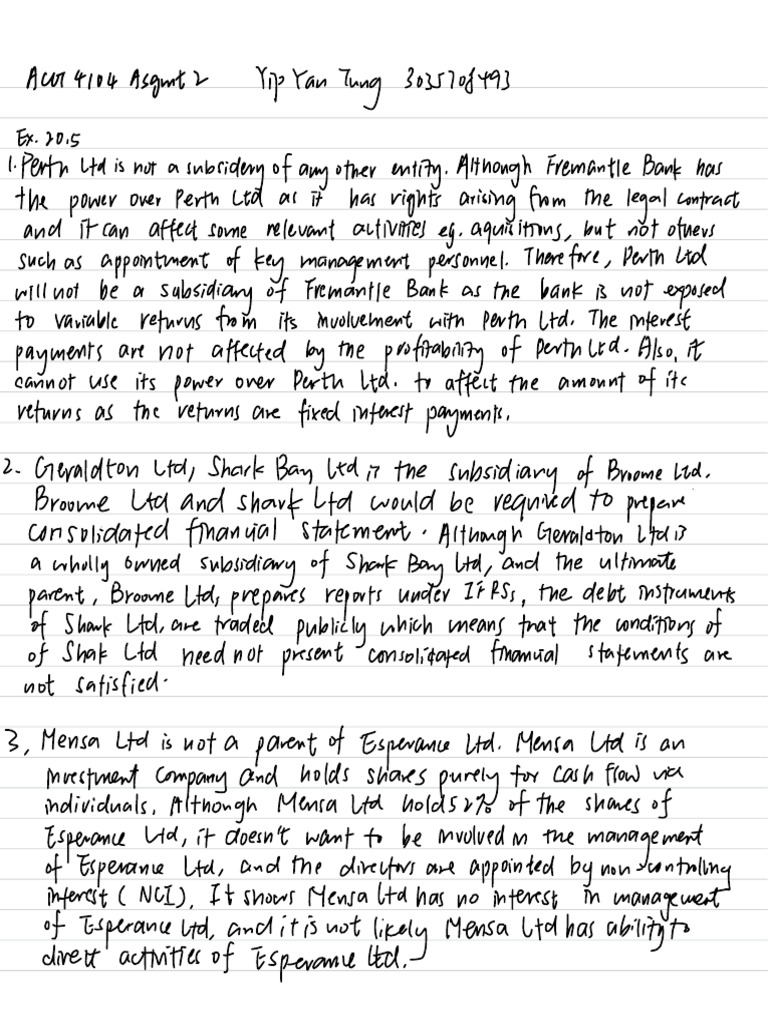 Acct 4104 Asgmt 2 Yip Yan Tung 3035708493
Ex. 20.5
1. Perth Ltd is not a subsidery of any other entity. Although Fremantle Bank has
the power over Perth Ltd as it has rights arising from the legal contract
and it can affect some relevant activities eg. aquisitions, but not others
such as appointment of key management personnel. Therefore, Perth Ltd
will not be a subsidiary of Fremantle Bank as the bank is not exposed
to variable returns from its involvement with Perth Ltd. The interest
payments are not affected by the profitability of Perth Ltd. Also, it
cannot use its power over Perth Ltd. to affect the amount of its
returns as the returns are fixed interest payments.
2. Geraldton Ltd, Shark Bay Ltd is the subsidiary of Broome Ltd.
Broome Ltd and shark Ltd would be required to prepare
consolidated financial statement. Although Geraldton Ltd is
a wholly owned subsidiary of Shark Bay Ltd, and the ultimate
parent, Broome Ltd, prepares reports under IFRSs, the debt instruments
of Shark Ltd, are traded publicly which means that the conditions of
of Shak Ltd need not present consolidated financial statements are
not satisfied.
3, Mensa Ltd is not a parent of Esperance Ltd. Mensa Ltd is an
investment company and holds shares purely for cash flow via
individuals. Although Mensa Ltd holds 52% of the shares of
Esperance Ltd, it doesn't want to be involved in the management
of Esperance Ltd, and the directors are appointed by non-controlling
interest (NCI). It shows Mensa Ltd has no interest in management
of Esperance Ltd, and it is not likely Mensa Ltd has ability to
direct activities of Esperance Ltd.